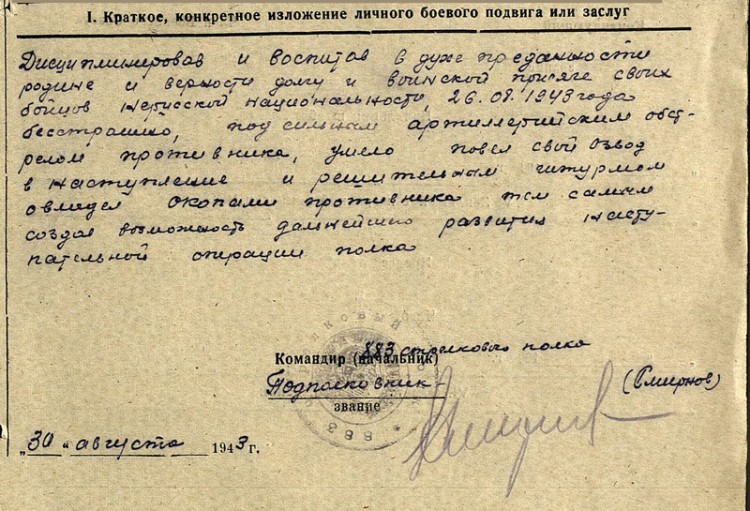 I. Краткое, конкретное изложение личного боевого подвига или заслуг
Дисциплинировав и воспитав в духе преданности
родине и верности долгу и воинской присяге своих
бойцов нерусской национальности, 26.08.1943 года
бесстрашно, под сильным артиллерийским обст-
релом противника, умело повел свой взвод
в наступление и решительным штурмом
овладел окопами противника тем самым
создав возможность дальнейшего развития насту-
пательной операции полка
Командир (начальник) 883 стрелкового полка
Подполковник (Смирнов)
звание
"30" августа 1943 г.
883